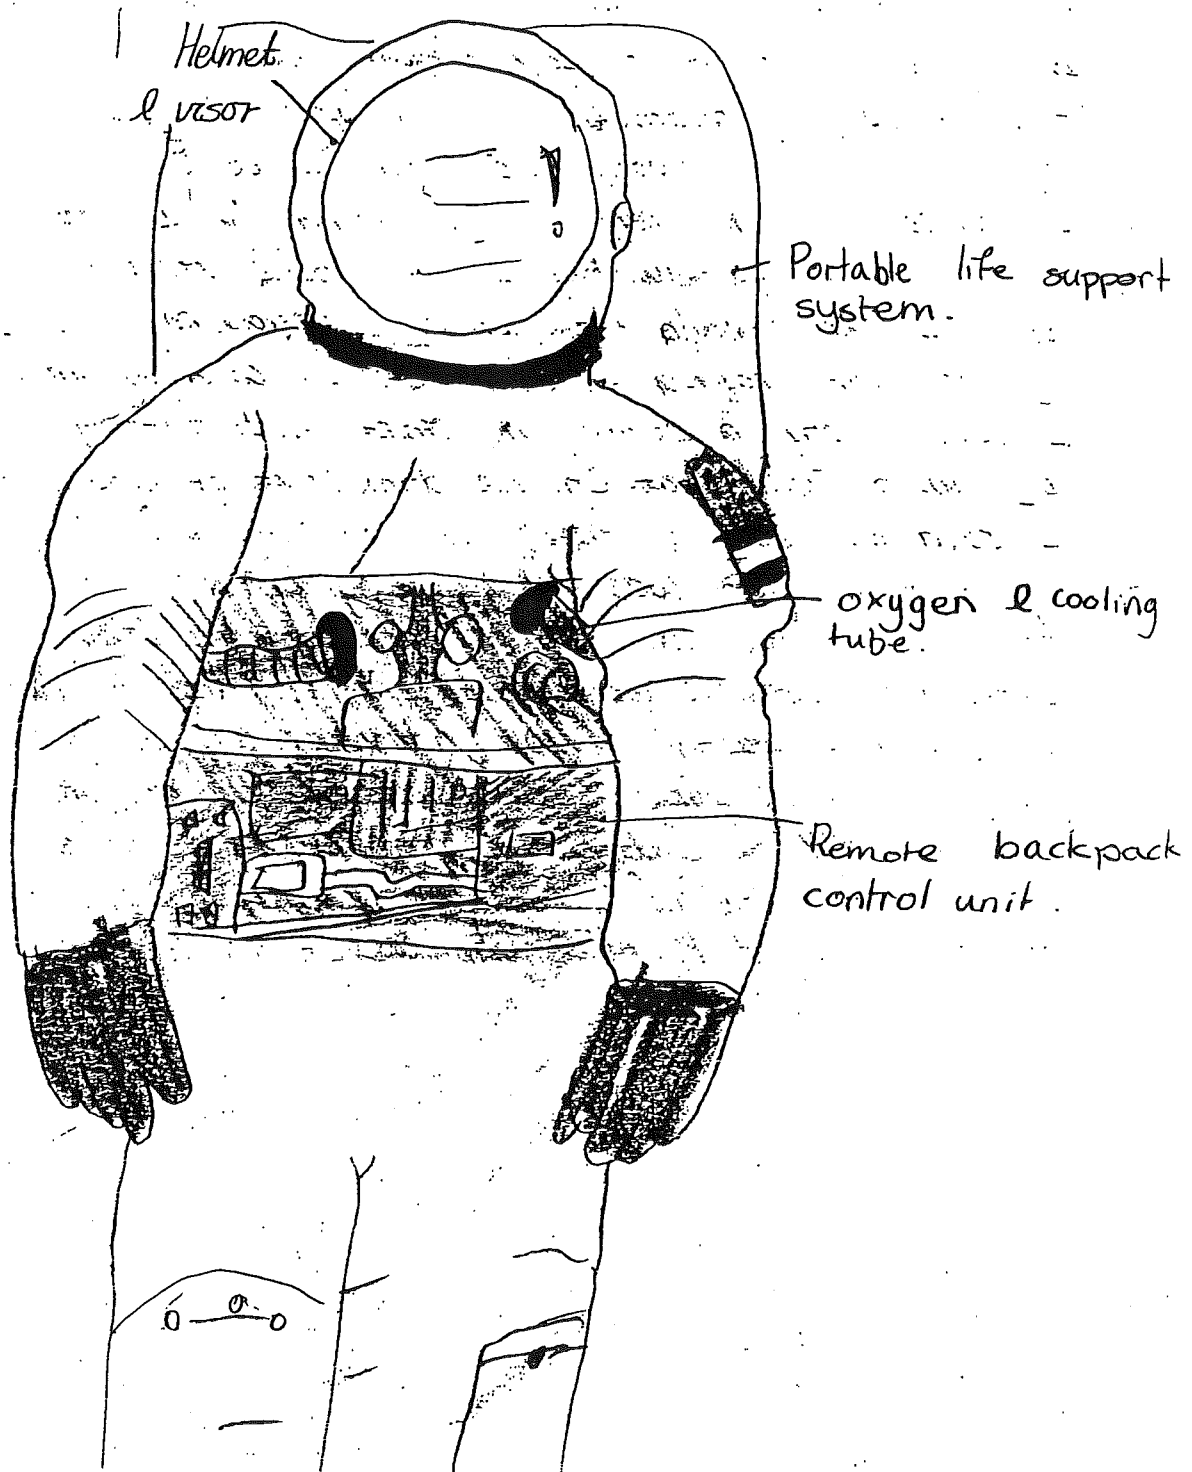 Helmet
& visor
Portable life support
system.
oxygen & cooling
tube.
Remote backpack
control unit.